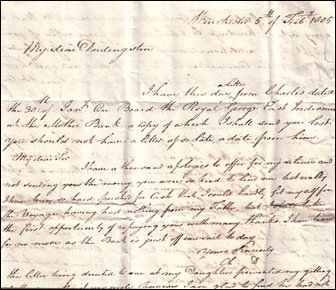 Winchester 5th of Feb 1805
My dear Duddingston
letter
I have this day from Charles dated
the 30th Jany On Board the Royal George East Indiaman
at the Mother Bank a copy of which I shall send you lest
you should not have a letter of so late a date from him
My dear Sir
I have a thousand apologies to offer for my silence and
not sending you the money you were so kind to lend me but really
I have been so hard pushed for Cash that I could hardly fit myself for
the Voyage having had nothing from my Father but I take
the first opportunity of repaying you with many thanks I have
for no more as the Boat is just off
Yours Sincerely
C. D.
this letter being directed to one of my Daughters prevented my getting
however I am glad to find he had no